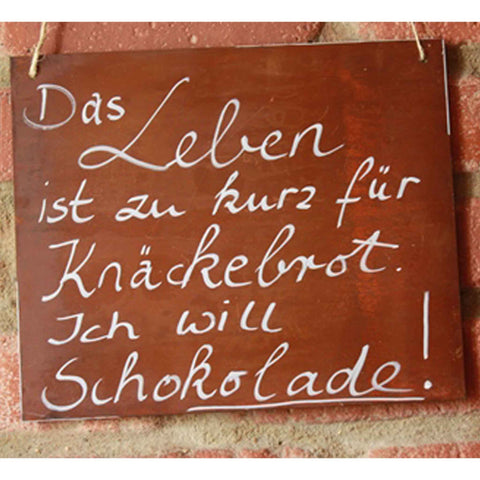 Das
Leben
ist zu kurz für
Knäckebrot.
Ich will
Schokolade!